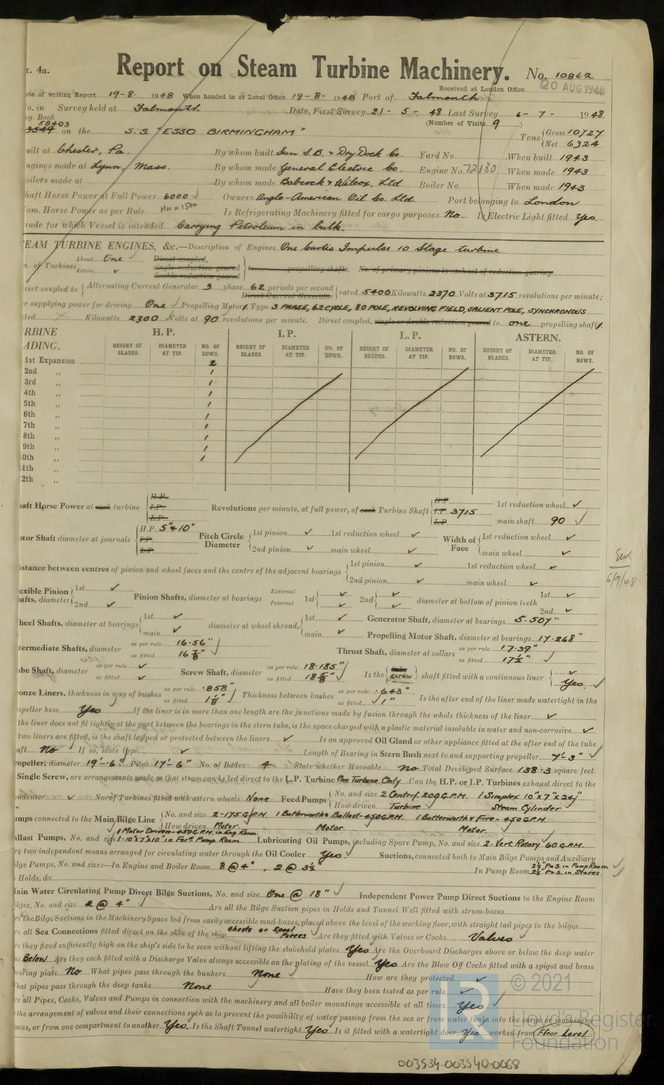 t. 4a.
Report on Steam Turbine Machinery. No. 10862
Received at London Office 20 AUG 1948
te of writing Report 19-8- 1948 When handed in at Local Office 19-8- 1948 Port of Falmouth
o. in Survey held at Falmouth Date, First Survey 21-5-48 Last Survey 6-7-1948
g. Book (Number of Visits 9
58403
3549 on the S.S. "ESSO BIRMINGHAM" Tons {Gross 10727 Net 6324
uilt at Chester, Pa. By whom built Sun S.B. & Dry Dock Co. Yard No. When built 1943
ngines made at Lynn, Mass. By whom made General Electric Co. Engine No. 72130 When made 1943
oilers made at By whom made Babcock & Wilcox, Ltd Boiler No. When made 1943
haft Horse Power at Full Power 6000 Owners Anglo-American Oil Co. Ltd Port belonging to London
om. Horse Power as per Rule MN = 1500 Is Refrigerating Machinery fitted for cargo purposes No. Is Electric Light fitted Yes.
rade for which Vessel is intended Carrying Petroleum in bulk.
TEAM TURBINE ENGINES, &c.—Description of Engines One Curtis Impulse 10 Stage turbine
. of Turbines Ahead One Direct coupled, single reduction geared double reduction geared propelling shafts. No. of primary pinions to each set of reduction gearing
Astern
rect coupled to Alternating Current Generator 3 phase 62 periods per second Direct Current Generator rated 5400 Kilowatts 2370 Volts at 3715 revolutions per minute;
r supplying power for driving One Propelling Motor 1 Type 3 PHASE, 62 CYCLE, 80 POLE, REVOLVING FIELD, SALIENT POLE, SYNCHRONOUS
ted Kilowatts 2300 Volts at 90 revolutions per minute. Direct coupled, single or double reduction geared to one propelling shaft
RBINE H.P. I.P. L.P. ASTERN.
ADING. HEIGHT OF BLADES. DIAMETER AT TIP. NO. OF ROWS. HEIGHT OF BLADES. DIAMETER AT TIP. NO. OF ROWS. HEIGHT OF BLADES. DIAMETER AT TIP. NO. OF ROWS. HEIGHT OF BLADES. DIAMETER AT TIP. NO. OF ROWS.
1st Expansion 2
2nd ,, 1
3rd ,, 1
4th ,, 1
5th ,, 1
6th ,, 1
7th ,, 1
8th ,, 1
9th ,, 1
10th ,, 1
1th ,,
2th ,,
haft Horse Power at each turbine H.P. I.P. L.P. Revolutions per minute, at full power, of each Turbine Shaft H.P. I.P. 3715 L.P. 1st reduction wheel main shaft 90
otor Shaft diameter at journals H.P. 5" & 10" I.P. L.P. Pitch Circle Diameter 1st pinion 1st reduction wheel 2nd pinion main wheel Width of Face 1st reduction wheel main wheel
istance between centres of pinion and wheel faces and the centre of the adjacent bearings 1st pinion 1st reduction wheel 2nd pinion main wheel
6/7/48
exible Pinion afts, diameter 1st 2nd Pinion Shafts, diameter at bearings External Internal 1st 2nd diameter at bottom of pinion teeth 1st 2nd
heel Shafts, diameter at bearings 1st main diameter at wheel shroud, 1st main Generator Shaft, diameter at bearings 5.507"
Propelling Motor Shaft, diameter at bearings 17.268"
termediate Shafts, diameter as per rule 16.56" as fitted 16⅞" Thrust Shaft, diameter at collars as per rule 17.39" as fitted 17½"
ube Shaft, diameter as per rule as fitted Screw Shaft, diameter as per rule 18.185" as fitted 18⅝" Is the screw shaft fitted with a continuous liner Yes.
ronze Liners, thickness in way of bushes as per rule .858" as fitted 1⅛" Thickness between bushes as per rule .643" as fitted 1" Is the after end of the liner made watertight in the
opeller boss Yes If the liner is in more than one length are the junctions made by fusion through the whole thickness of the liner
the liner does not fit tightly at the part between the bearings in the stern tube, is the space charged with a plastic material insoluble in water and non-corrosive
two liners are fitted, is the shaft lapped or protected between the liners Is an approved Oil Gland or other appliance fitted at the after end of the tube
aft No If so, state type Length of Bearing in Stern Bush next to and supporting propeller 7'-3"
opeller, diameter 19'-6" Pitch 17'-6" No. of Blades 4 State whether Moveable No Total Developed Surface 138.3 square feet.
Single Screw, are arrangements made so that steam can be led direct to the L.P. Turbine One Turbine Only Can the H.P. or I.P. Turbines exhaust direct to the
ondenser No. of Turbines fitted with astern wheels None Feed Pumps No. and size 2 Centrf. 200 G.P.M. 1 Simplex 10"x7"x24" How driven Turbine Steam Cylinder
umps connected to the Main Bilge Line No. and size 2-175 G.P.M. 1 Butterworth & Ballast-450 G.P.M. 1 Butterworth & Fire-450 G.P.M. How driven Motor Motor Motor
allast Pumps, No. and size 1 Motor Driven-450 G.P.M. in Eng. Room. 1-10"x7"x10" in Ford Pump Room Lubricating Oil Pumps, including Spare Pump, No. and size 2-Vert. Rotary 60 G.P.M.
re two independent means arranged for circulating water through the Oil Cooler Yes Suctions, connected both to Main Bilge Pumps and Auxiliary
lge Pumps, No. and size:—In Engine and Boiler Room 8 @ 4", 2 @ 3½ In Pump Room 2½" P&S. in Pump Room 2½" P&S. in Stores
Holds, &c.
ain Water Circulating Pump Direct Bilge Suctions, No. and size One @ 18" Independent Power Pump Direct Suctions to the Engine Room
ilges, No. and size 2 @ 4" Are all the Bilge Suction pipes in Holds and Tunnel Well fitted with strum-boxes
re the Bilge Suctions in the Machinery Space led from easily accessible mud-boxes, placed above the level of the working floor, with straight tail pipes to the bilges
re all Sea Connections fitted direct on the skin of the ship chests or Spool Pieces Are they fitted with Valves or Cocks Valves
re they fixed sufficiently high on the ship's side to be seen without lifting the stokehold plates Yes Are the Overboard Discharges above or below the deep water
ne Below Are they each fitted with a Discharge Valve always accessible on the plating of the vessel Yes Are the Blow Off Cocks fitted with a spigot and brass
vering plate No What pipes pass through the bunkers None How are they protected
hat pipes pass through the deep tanks None Have they been tested as per rule
re all Pipes, Cocks, Valves and Pumps in connection with the machinery and all boiler mountings accessible at all times Yes
the arrangement of valves and their connections such as to prevent the possibility of water passing from the sea or from water tanks into the cargo or machinery
aces, or from one compartment to another Yes. Is the Shaft Tunnel watertight Yes Is it fitted with a watertight door Yes worked from Floor Level
© 2021
Lloyd's Register
Foundation
003534-003540-0068